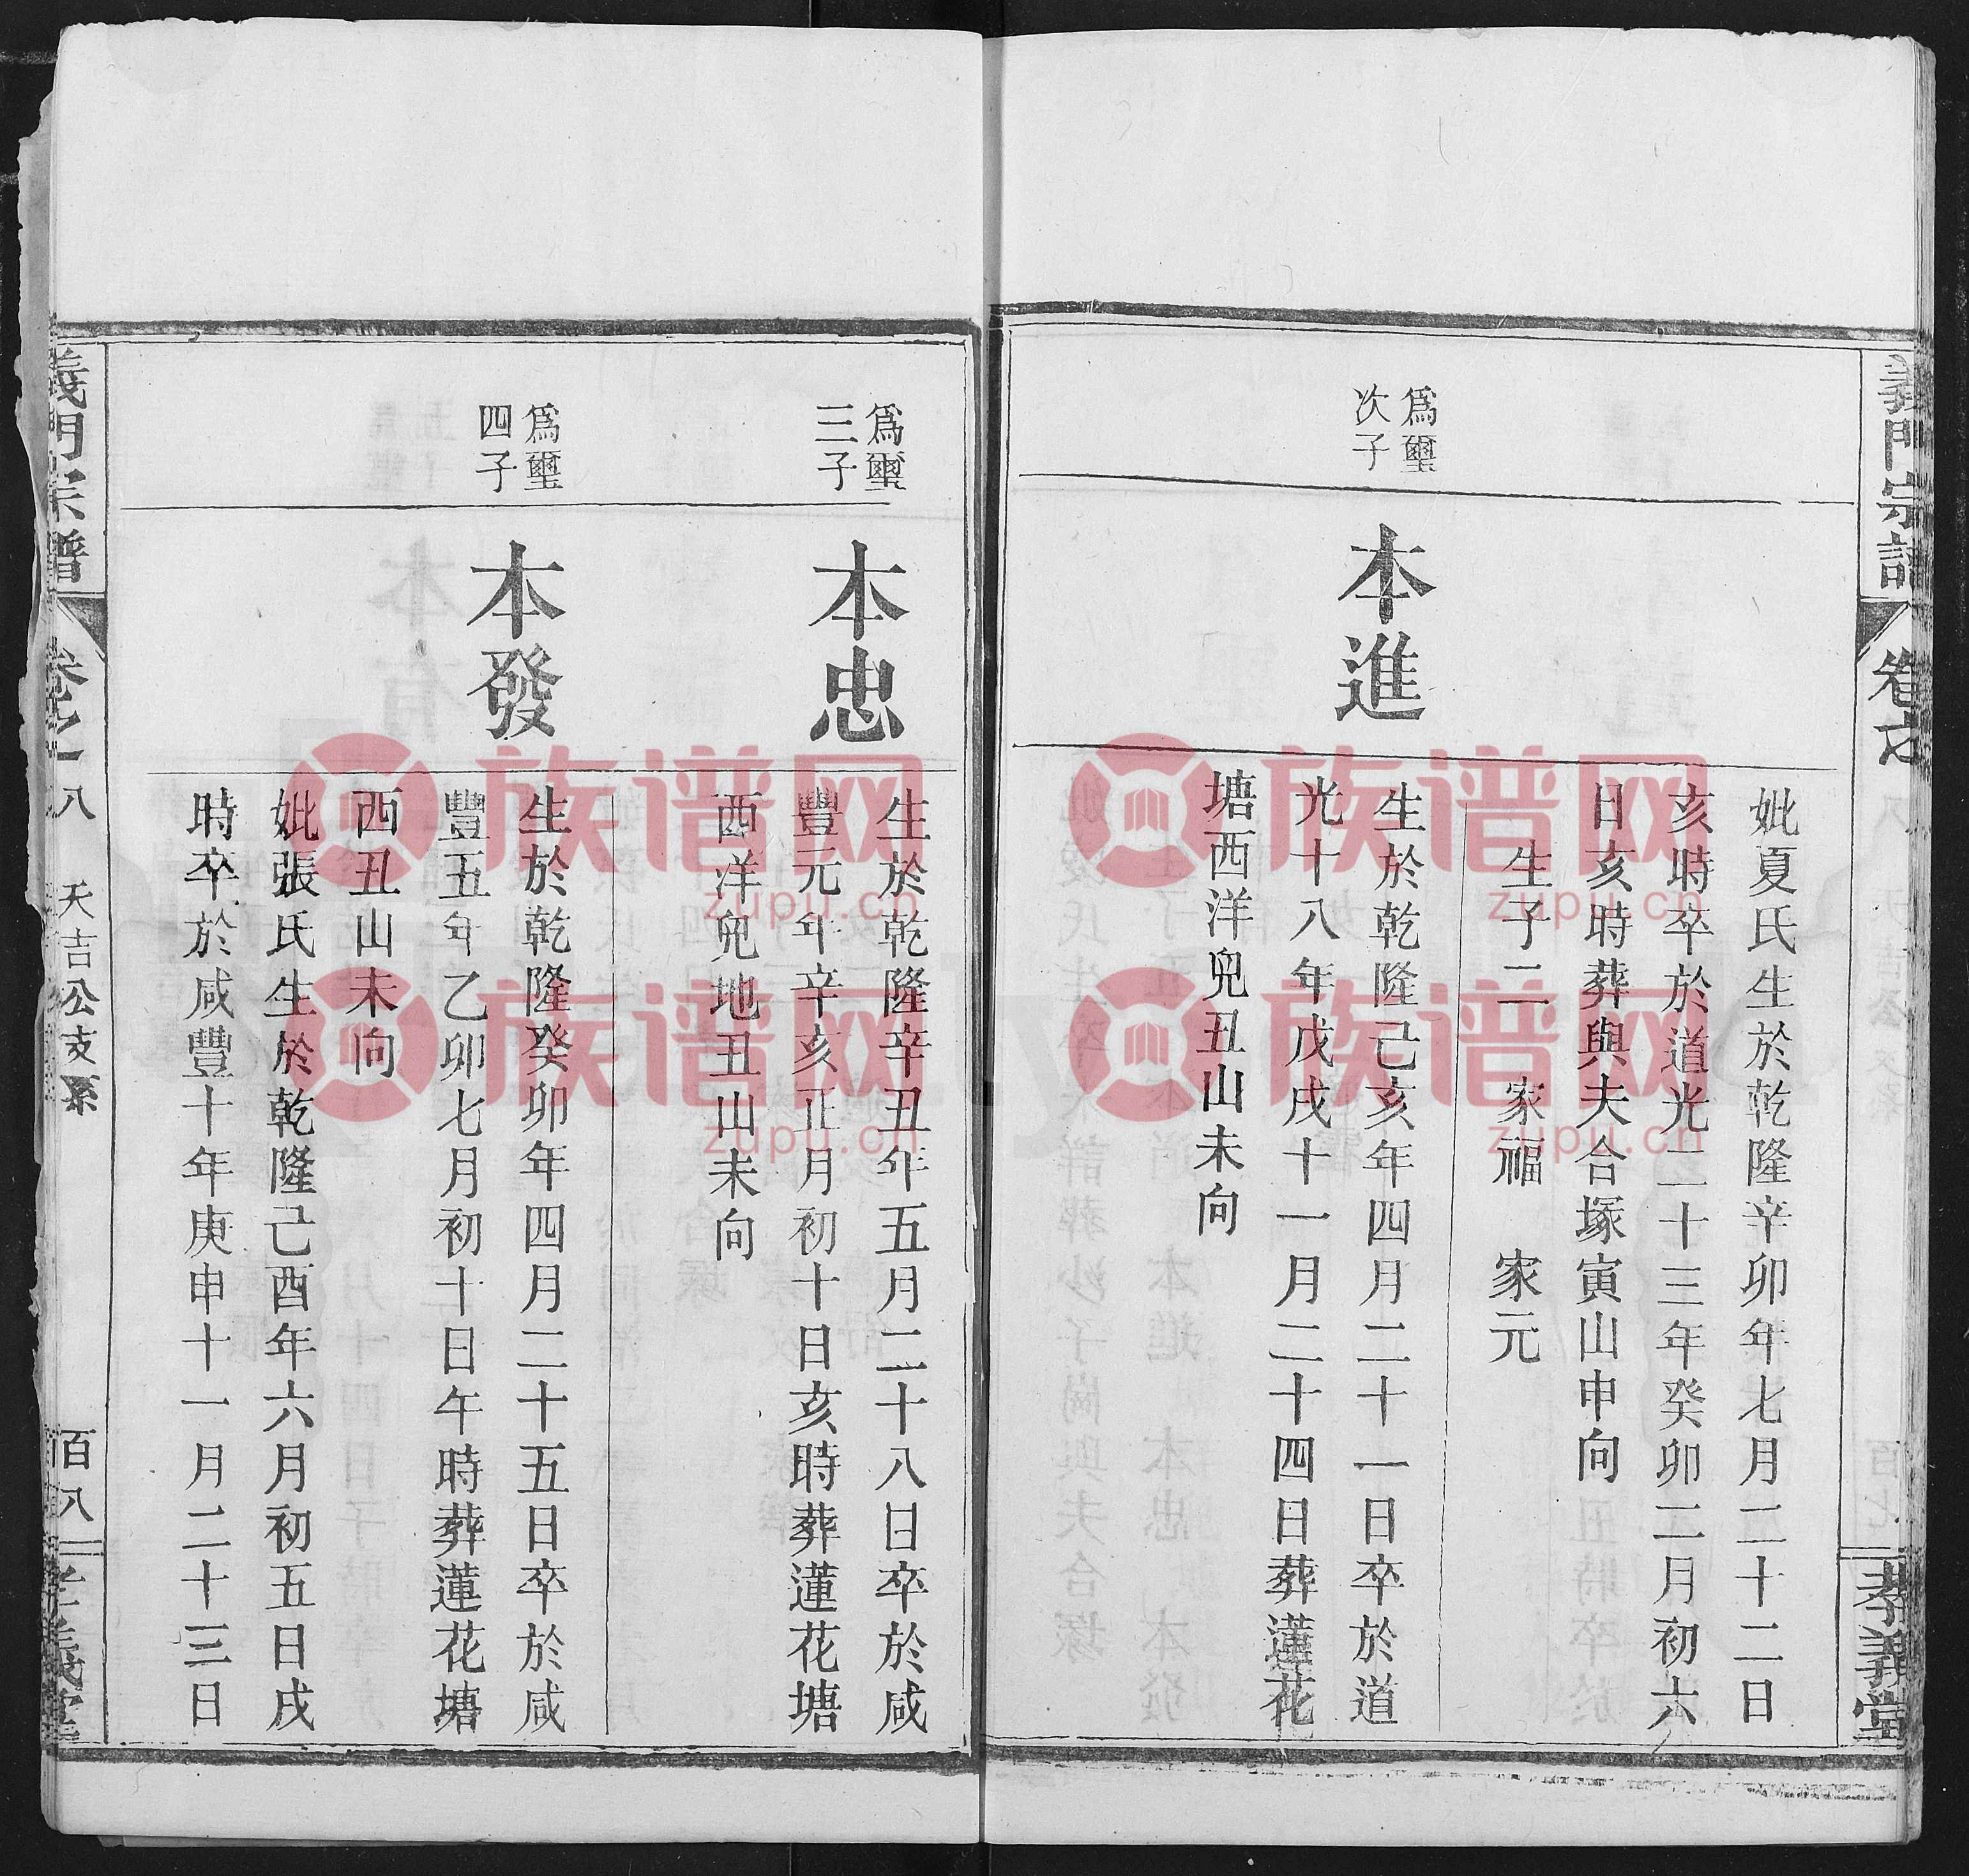 義門宗譜
卷之
孝義堂
妣夏氏生於乾隆辛卯年七月二十二日
亥時卒於道光二十三年癸卯二月初六
日亥時葬與夫合塚寅山申向
生子二 家福 家元
爲璽
次子
本進
生於乾隆己亥年四月二十一日卒於道
光十八年戊戌十一月二十四日葬蓮花
塘西洋兜丑山未向
爲璽
三子
本忠
生於乾隆辛丑年五月二十八日卒於咸
豐元年辛亥正月初十日亥時葬蓮花塘
西洋兜地丑山未向
爲璽
四子
本發
生於乾隆癸卯年四月二十五日卒於咸
豐五年乙卯七月初十日午時葬蓮花塘
西丑山未向
妣張氏生於乾隆己酉年六月初五日戌
時卒於咸豐十年庚申十一月二十三日
義門宗譜
卷之八
天吉公支系
百八
孝義堂
族谱网
zupu.cn
族谱网
zupu.cn
族谱网
zupu.cn
族谱网
zupu.cn